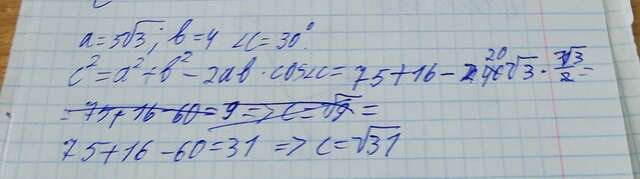 a=5√3; b=4 ∠C=30°
c²=a²+b²-2ab·cos∠c=75+16-2·20√3·√3/2=
=75+16-60=9=>c=√9=
75+16-60=31=>c=√31